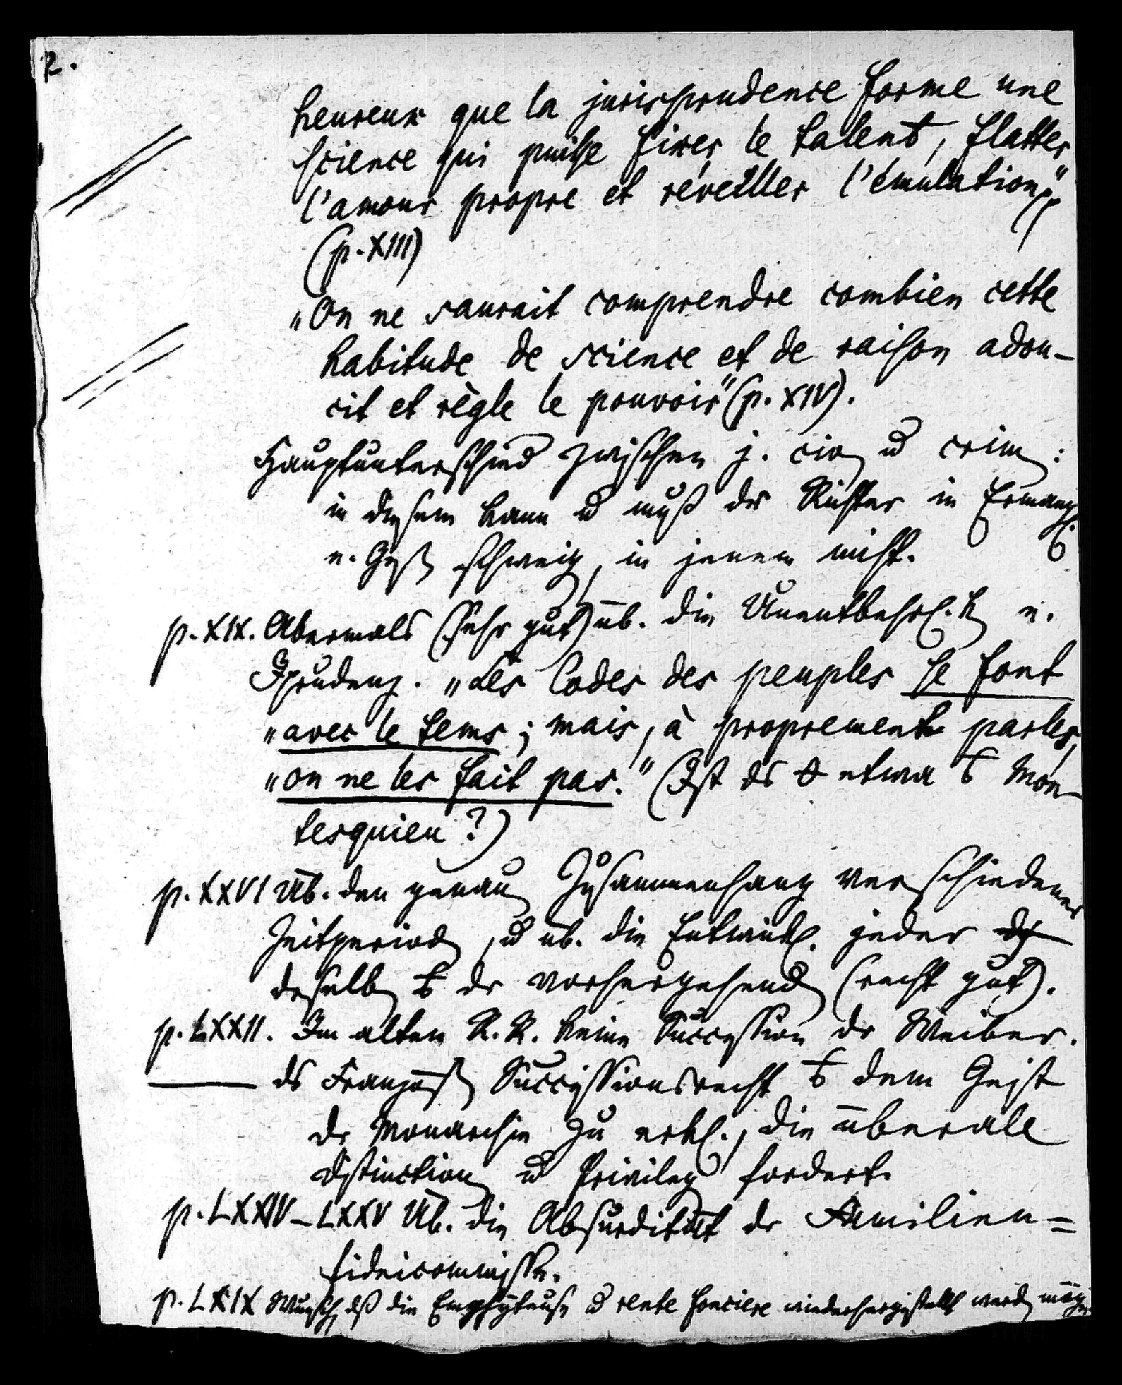 2.
heureux que la jurisprudence forme une
science qui puisse fixer le talent, flatter
l'amour propre et réveiller l'émulation"
(p. XIII)
„On ne saurait comprendre combien cette
habitude de science et de raison adou-
cit et règle le pouvoir" (p. XIV).
Hauptunterschied zwischen j. civ u crim:
in diesem kann u muß der Richter in Ermang.
e. Ges schweig, in jenem nicht.
p. XIX. Abermals (sehr gut) üb. die Unentbehrl.k e.
Jprudenz. „Les Codes des peuples se font
„avec le tems; mais, à proprement parler,
„on ne les fait pas." (Ist ds etwa Mon-
tesquieu?)
p. XXVI Üb. den genau Zusammenhang verschiedener
Zeitperiod, u üb. die Entwickl. jeder
deselb der vorhergehend (recht gut).
p. LXXII. Im alten R. R. keine Succession der Weiber.
ds Französ Successionsrecht dem Geist
der Monarchie zu erkl., die überall
Distinction u Privileg fordert.
p. LXXIV – LXXV Üb. die Absurdität der Familien=
fideicommisse.
p. LXIX Wunsch, dß die Emphyteuse u rente fonciere wiederhergestellt werd möge